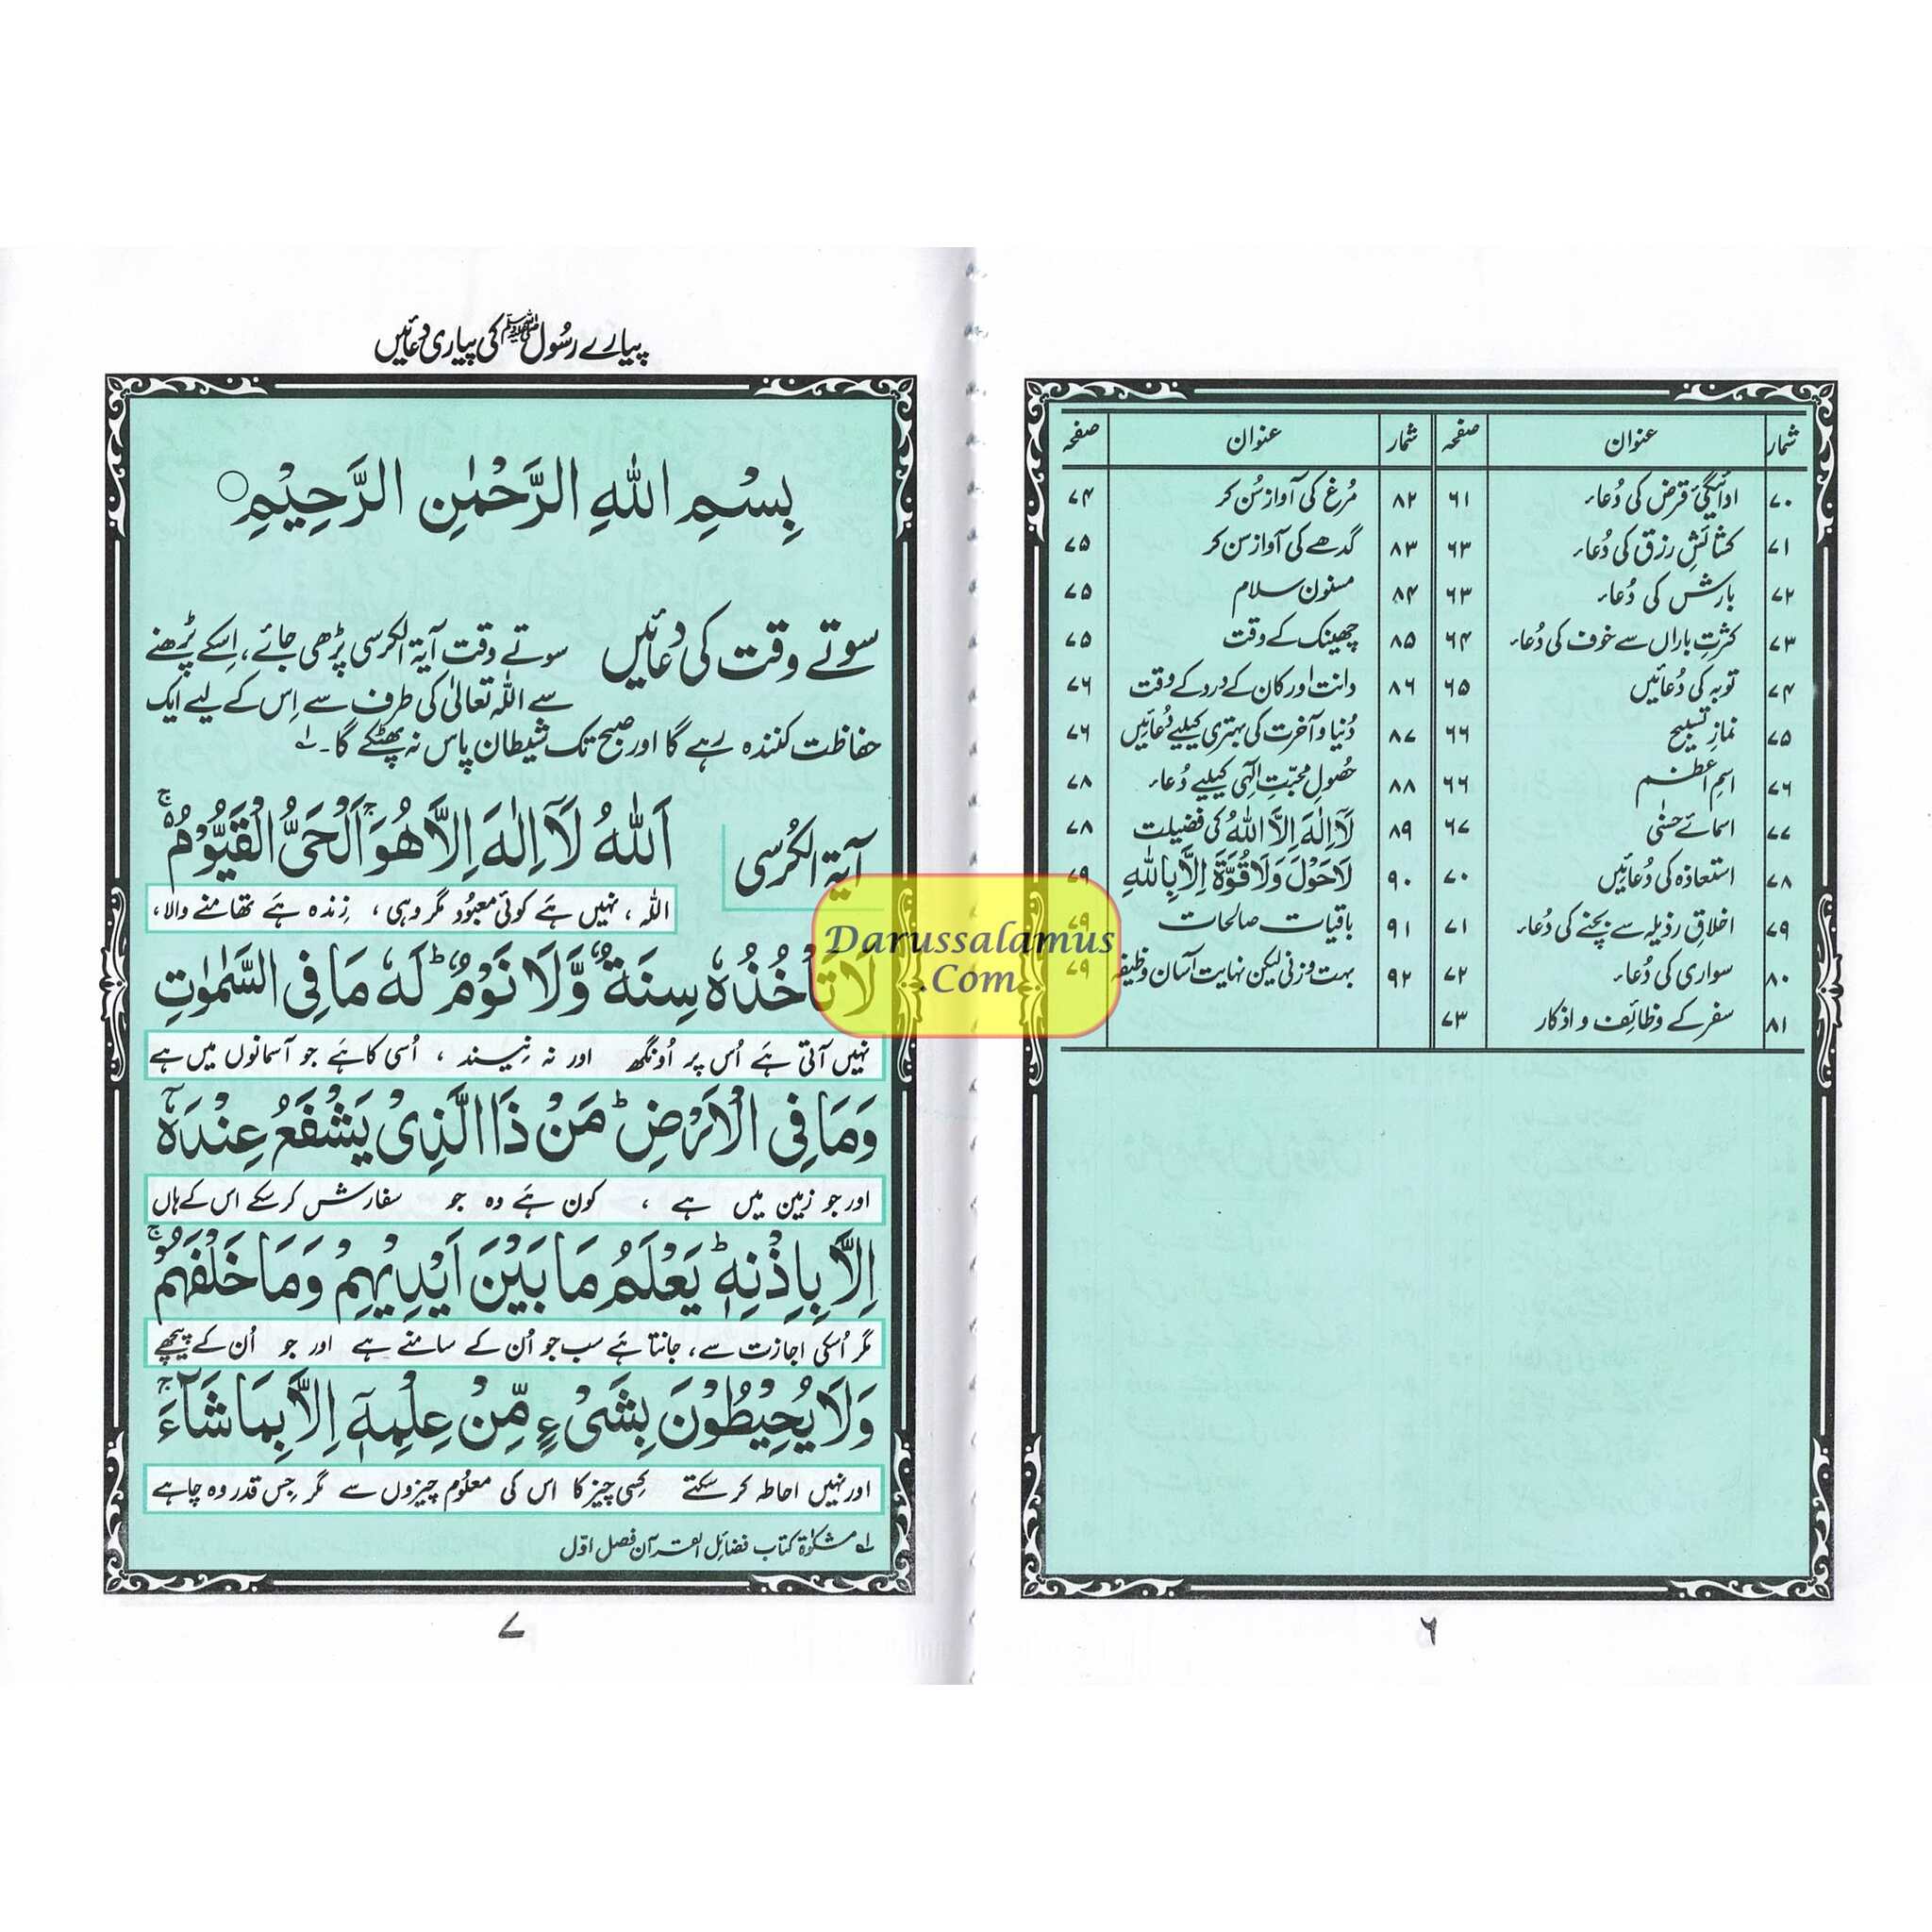 شمار عنوان صفحہ شمار عنوان صفحہ
۷۰ ادائیگیٔ قرض کی دُعاء ۶۱ ۸۲ مُرغ کی آواز سُن کر ۷۴
۷۱ کشائشِ رزق کی دُعاء ۶۳ ۸۳ گدھے کی آواز سن کر ۷۵
۷۲ بارش کی دُعاء ۶۳ ۸۴ مسنون سلام ۷۵
۷۳ کثرتِ باراں سے خوف کی دُعاء ۶۴ ۸۵ چھینک کے وقت ۷۵
۷۴ توبہ کی دُعائیں ۶۵ ۸۶ دانت اور کان کے درد کے وقت ۷۶
۷۵ نمازِ تسبیح ۶۶ ۸۷ دُنیا و آخرت کی بہتری کیلیے دُعائیں ۷۶
۷۶ اسمِ اعظم ۶۶ ۸۸ حُصولِ محبّتِ الٰہی کیلیے دُعاء ۷۸
۷۷ اسمائے حسنٰی ۶۷ ۸۹ لَآ اِلٰهَ اِلَّا اللّٰهُ کی فضیلت ۷۸
۷۸ استعاذہ کی دُعائیں ۷۰ ۹۰ لَاحَوْلَ وَلَا قُوَّةَ اِلَّا بِاللّٰهِ ۷۹
۷۹ اخلاقِ رذیلہ سے بچنے کی دُعاء ۷۱ ۹۱ باقیات صالحات ۷۹
۸۰ سواری کی دُعاء ۷۲ ۹۲ بہت وزنی لیکن نہایت آسان وظیفہ ۷۹
۸۱ سفر کے وظائف و اذکار ۷۳
۶
پیارے رسُول ﷺ کی پیاری دُعائیں
بِسْمِ اللّٰهِ الرَّحْمٰنِ الرَّحِيْمِ
سوتے وقت کی دُعائیں سوتے وقت آیۃ الکرسی پڑھی جائے، اِسکے پڑھنے
سے اللہ تعالیٰ کی طرف سے اِس کے لیے ایک
حفاظت کنندہ رہے گا اور صبح تک شیطان پاس نہ پھٹکے گا۔ لے
آیۃ الکُرسی اَللّٰهُ لَآ اِلٰهَ اِلَّا هُوَ ۚ اَلْحَيُّ الْقَيُّوْمُ ۚ
اللہ ، نہیں ہے کوئی معبُود مگر وہی ، زِندہ ہے تھامنے والا،
لَا تَاْخُذُهٗ سِنَةٌ وَّلَا نَوْمٌ ؕ لَهٗ مَا فِى السَّمٰوٰتِ
نہیں آتی ہے اُس پر اُونگھ اور نہ نِیند ، اُسی کا ہے جو آسمانوں میں ہے
وَمَا فِى الْاَرْضِ ؕ مَنْ ذَا الَّذِىْ يَشْفَعُ عِنْدَهٗۤ
اور جو زمین میں ہے ، کون ہے وہ جو سفارش کر سکے اس کے ہاں
اِلَّا بِاِذْنِهٖ ؕ يَعْلَمُ مَا بَيْنَ اَيْدِيْهِمْ وَمَا خَلْفَهُمْ ۚ
مگر اُسکی اجازت سے، جانتا ہے سب جو اُن کے سامنے ہے اور جو اُن کے پیچھے
وَلَا يُحِيْطُوْنَ بِشَىْءٍ مِّنْ عِلْمِهٖۤ اِلَّا بِمَا شَآءَ ۚ
اور نہیں احاطہ کر سکتے کِسی چیز کا اس کی معلُوم چیزوں سے مگر جس قدر وہ چاہے
لے مشکوٰۃ کتاب فضائل القرآن فصل اوّل
۷
Darussalamus
.Com